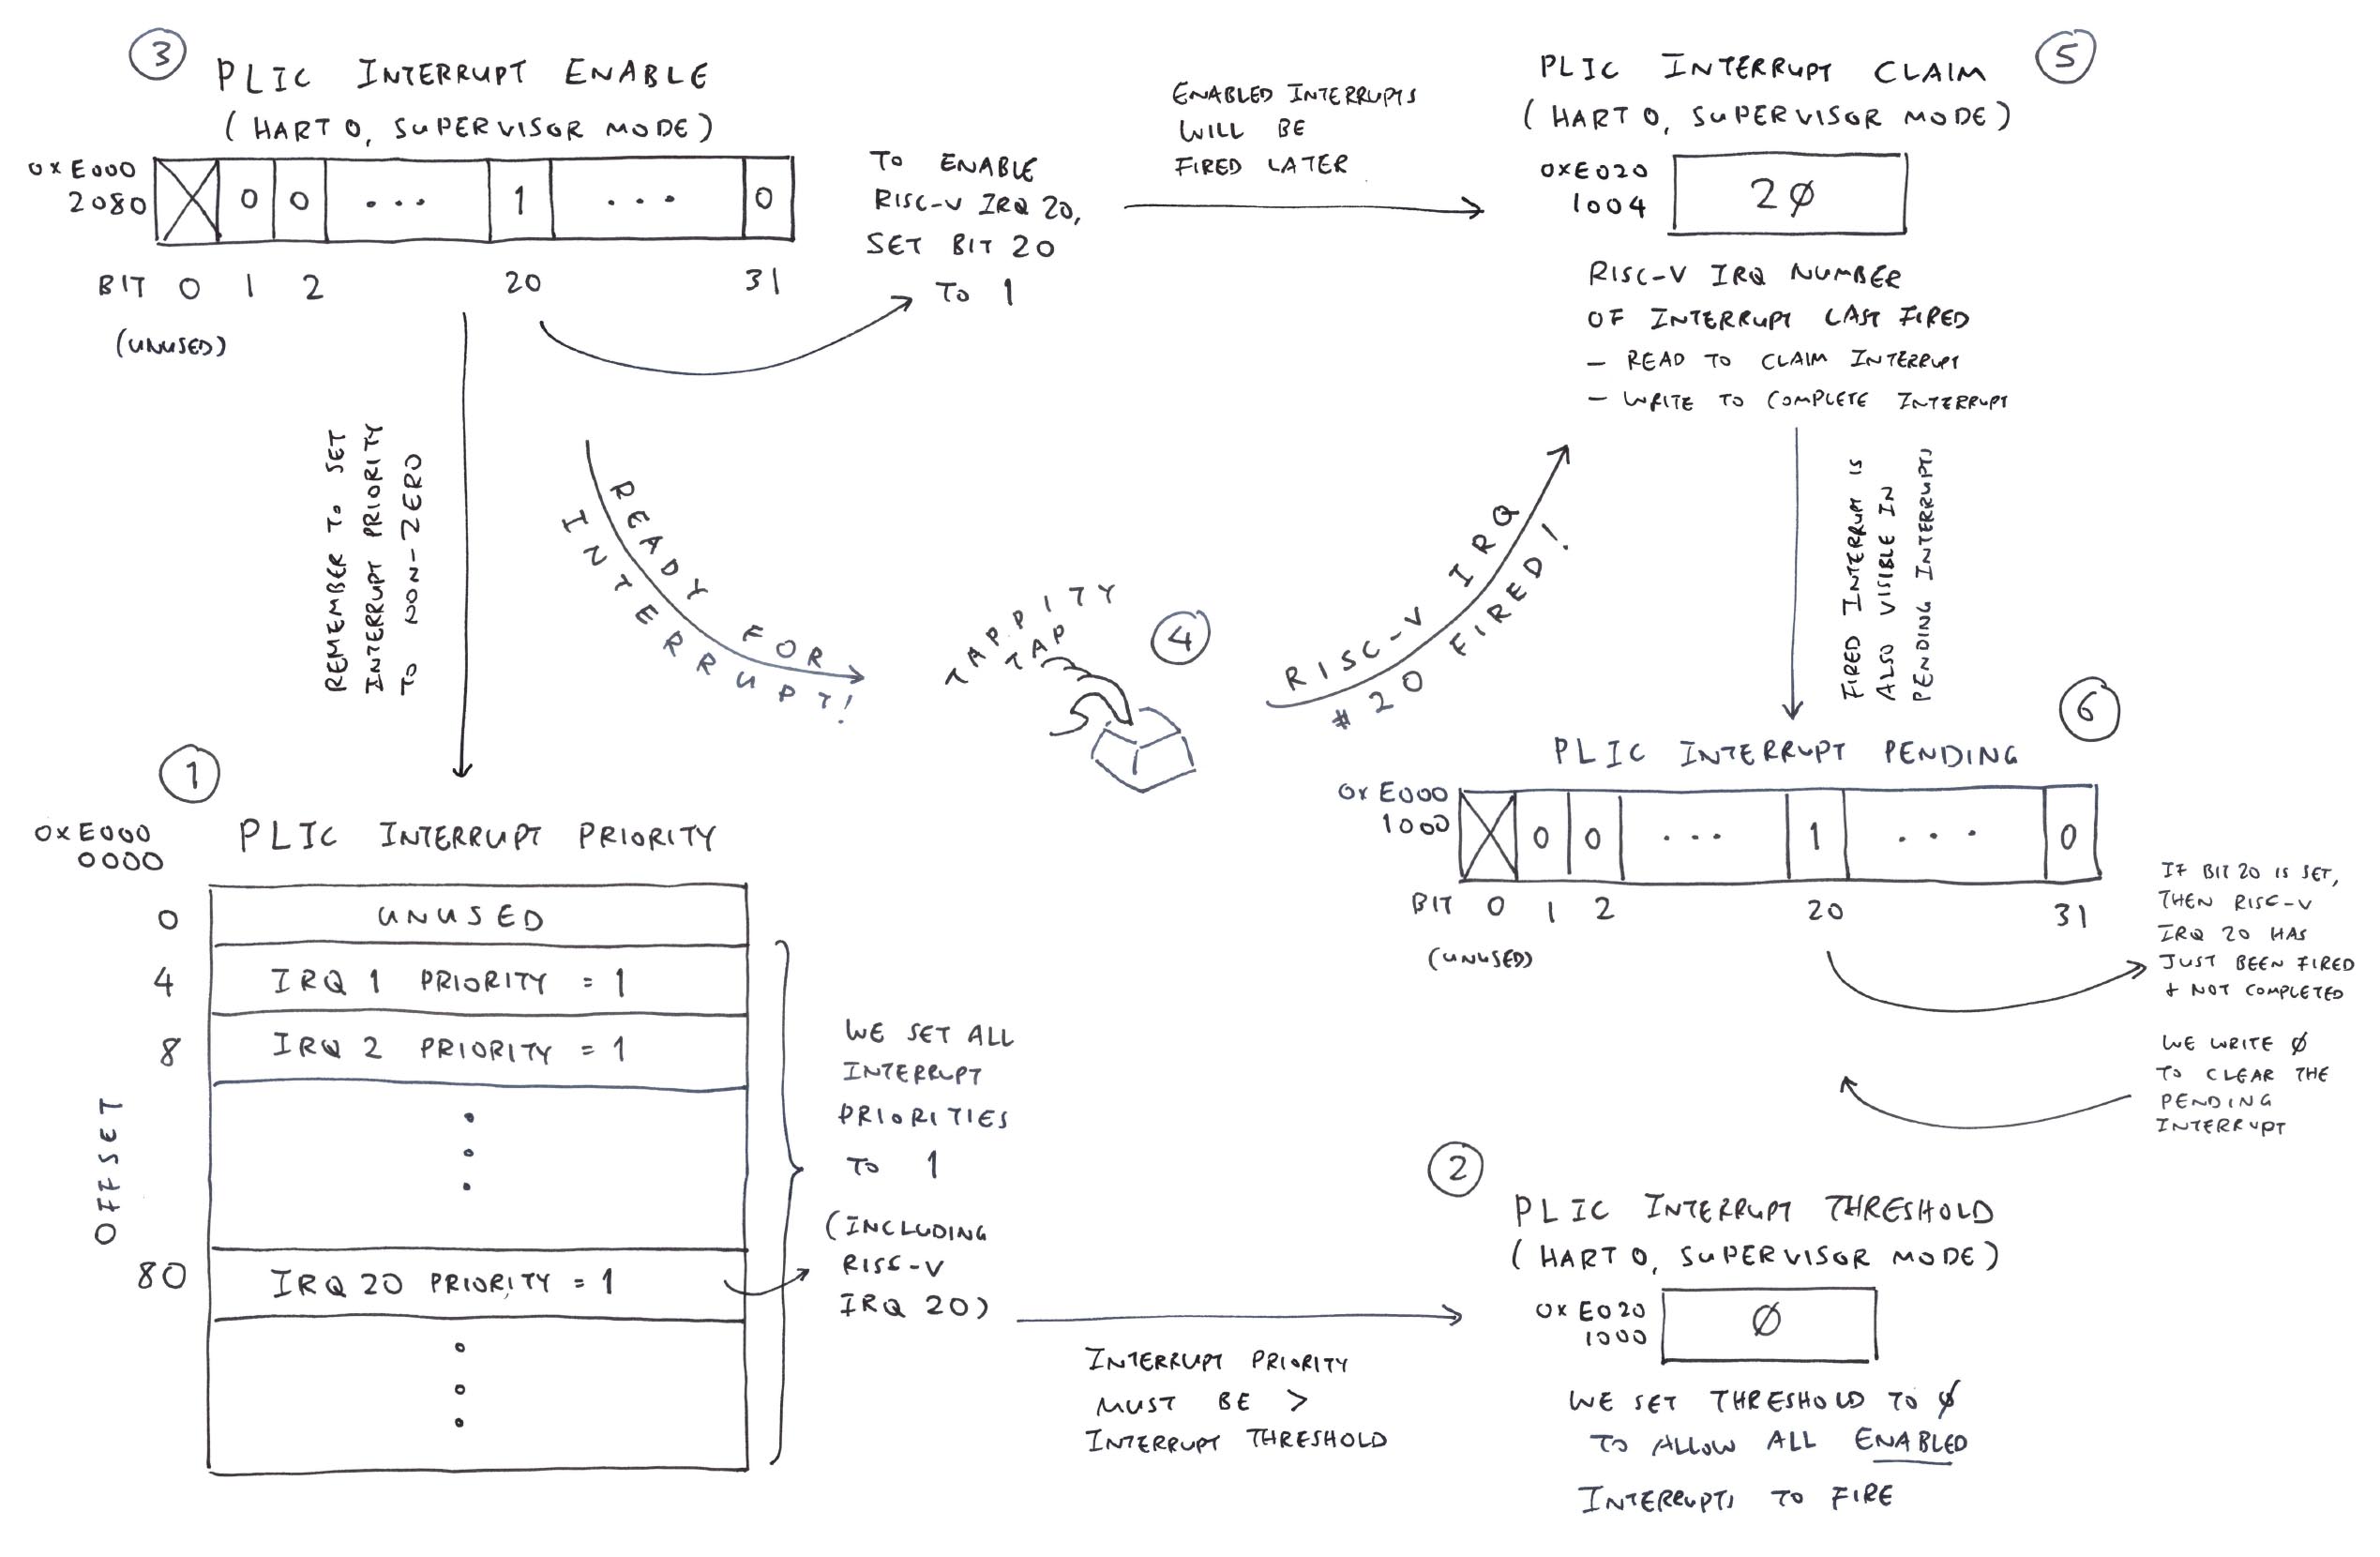 3
PLIC INTERRUPT ENABLE
(HART 0, SUPERVISOR MODE)
0xE000
2080
0 0 ... 1 ... 0
BIT 0 1 2 20 31
(UNUSED)
TO ENABLE
RISC-V IRQ 20,
SET BIT 20
TO 1
ENABLED INTERRUPTS
WILL BE
FIRED LATER
PLIC INTERRUPT CLAIM
5
(HART 0, SUPERVISOR MODE)
0xE020
1004
2Ø
RISC-V IRQ NUMBER
OF INTERRUPT LAST FIRED
- READ TO CLAIM INTERRUPT
- WRITE TO COMPLETE INTERRUPT
REMEMBER TO SET
INTERRUPT PRIORITY
TO NON-ZERO
READY FOR
INTERRUPT!
TAPPITY
TAP
4
RISC-V IRQ
#20 FIRED!
FIRED INTERRUPT IS
ALSO VISIBLE IN
PENDING INTERRUPTS
6
PLIC INTERRUPT PENDING
0xE000
1000
0 0 ... 1 ... 0
BIT 0 1 2 20 31
(UNUSED)
IF BIT 20 IS SET,
THEN RISC-V
IRQ 20 HAS
JUST BEEN FIRED
+ NOT COMPLETED
WE WRITE Ø
TO CLEAR THE
PENDING
INTERRUPT
1
0xE000
0000
PLIC INTERRUPT PRIORITY
OFFSET
0 UNUSED
4 IRQ 1 PRIORITY = 1
8 IRQ 2 PRIORITY = 1
80 IRQ 20 PRIORITY = 1
WE SET ALL
INTERRUPT
PRIORITIES
TO 1
(INCLUDING
RISC-V
IRQ 20)
INTERRUPT PRIORITY
MUST BE >
INTERRUPT THRESHOLD
2
PLIC INTERRUPT THRESHOLD
(HART 0, SUPERVISOR MODE)
0xE020
1000
Ø
WE SET THRESHOLD TO Ø
TO ALLOW ALL ENABLED
INTERRUPTS TO FIRE